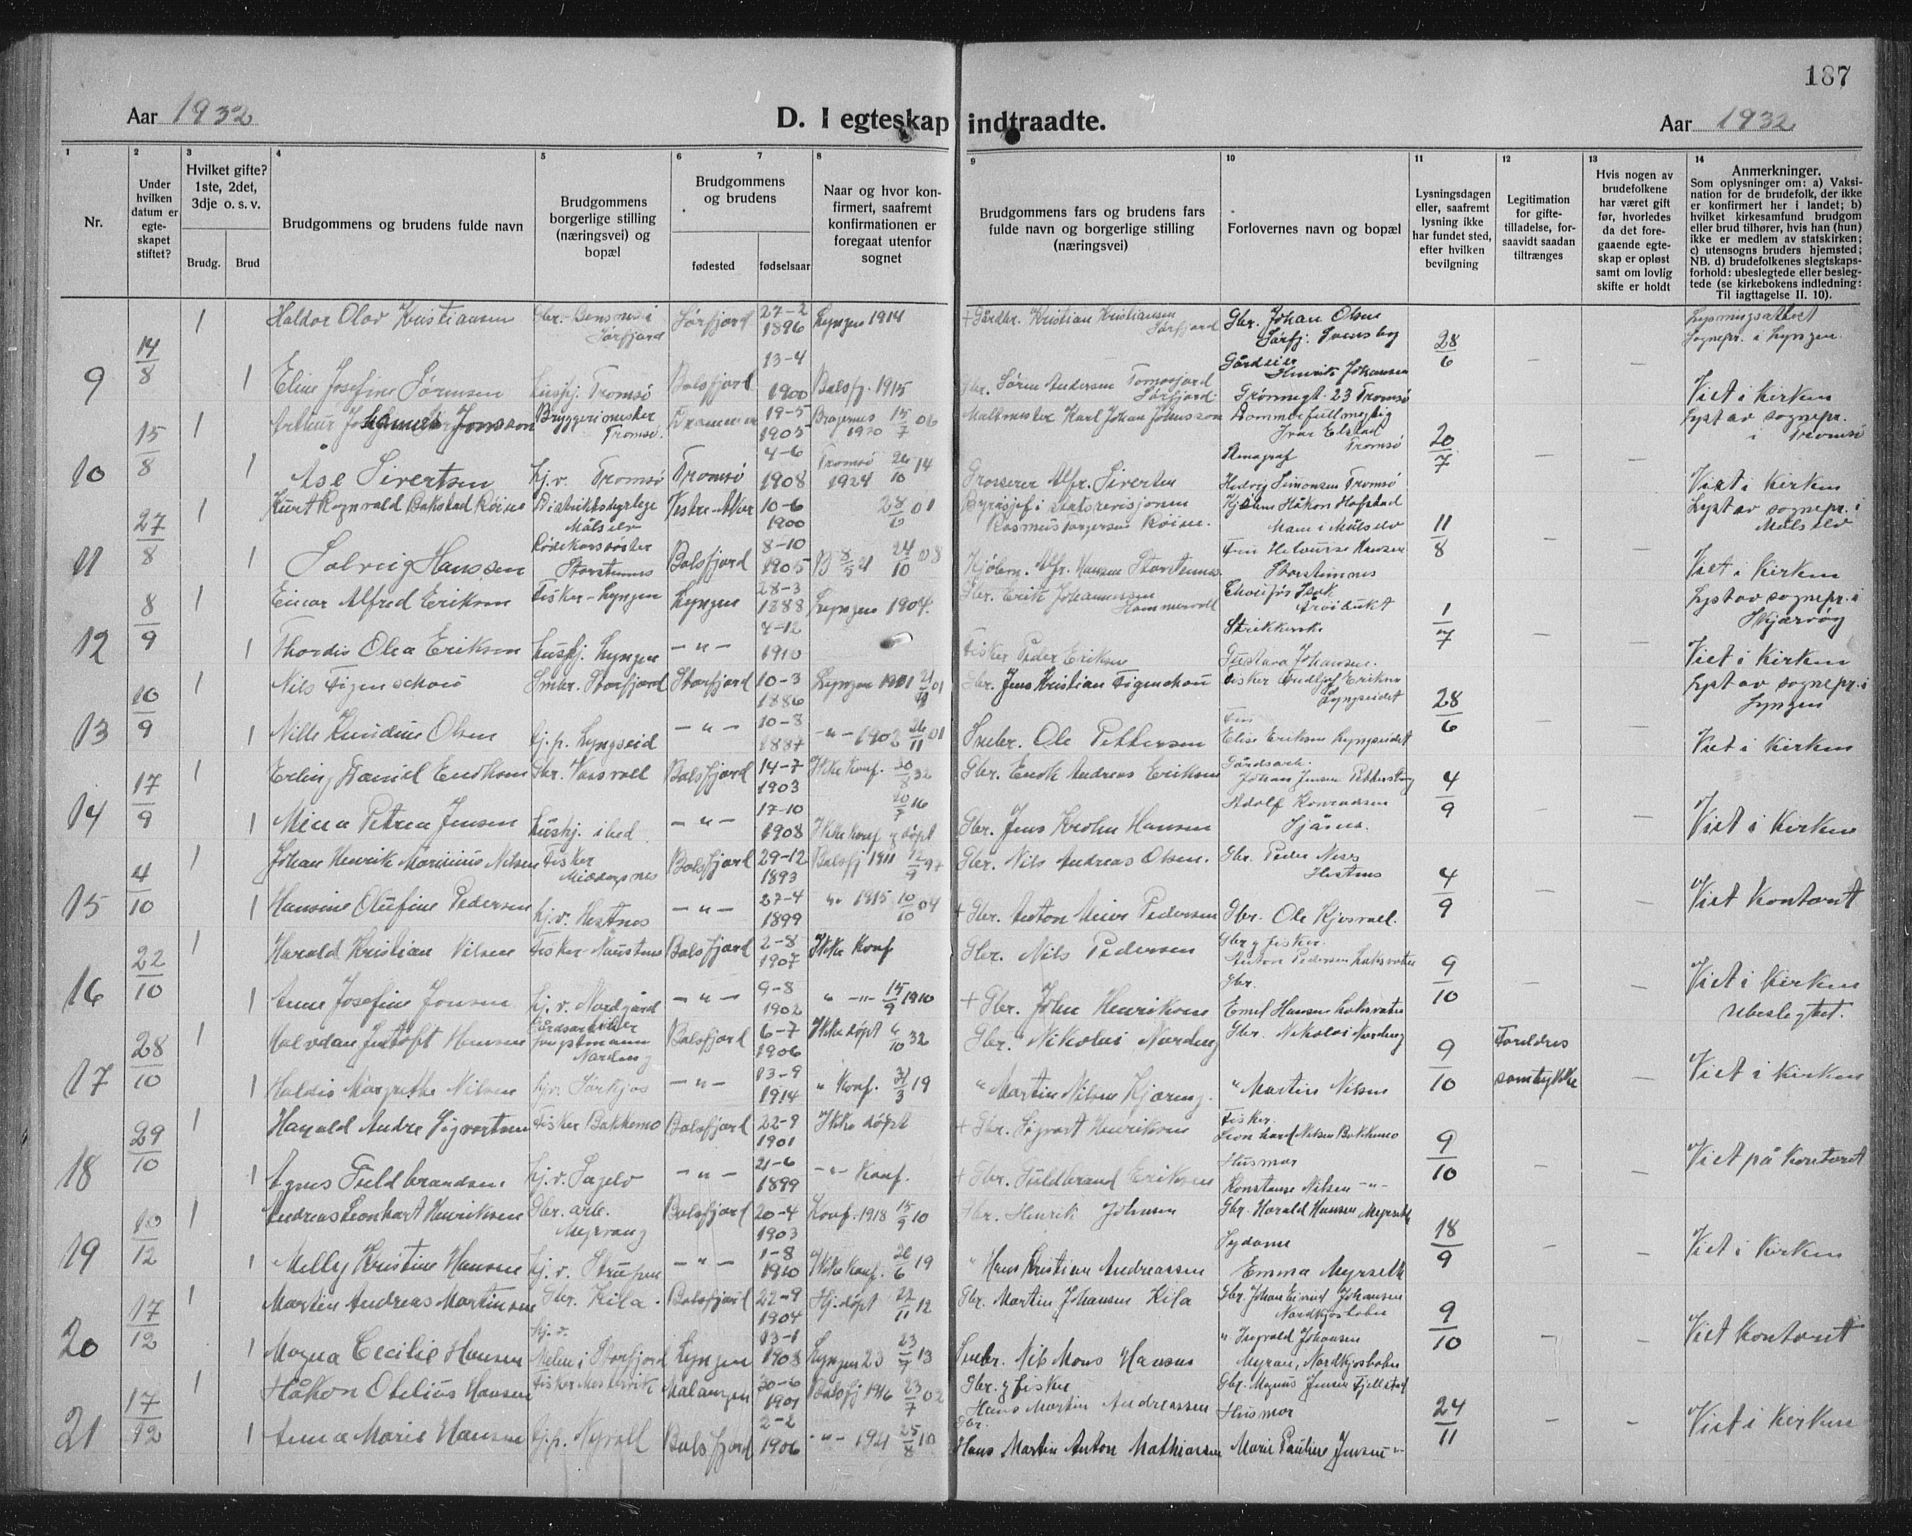 187
Aar 1932
D. I egteskap indtraadte.
Aar 1932
1 2 3 4 5 6 7 8 9 10 11 12 13 14
Nr.
Under hvilken datum er egteskapet stiftet?
Hvilket gifte? 1ste, 2det, 3dje o. s. v.
Brudg. Brud
Brudgommens og brudens fulde navn
Brudgommens borgerlige stilling (næringsvei) og bopæl
Brudgommens og brudens
fødested fødselsaar
Naar og hvor konfirmert, saafremt konfirmationen er foregaat utenfor sognet
Brudgommens fars og brudens fars fulde navn og borgerlige stilling (næringsvei)
Forlovernes navn og bopæl
Lysningsdagen eller, saafremt lysning ikke har fundet sted, efter hvilken bevilgning
Legitimation for giftetilladelse, forsaavidt saadan tiltrænges
Hvis nogen av brudefolkene har været gift før, hvorledes da det foregaaende egteskap er opløst samt om lovlig skifte er holdt
Anmerkninger.
Som oplysninger om: a) Vaksination for de brudefolk, der ikke er konfirmert her i landet; b) hvilket kirkesamfund brudgom eller brud tilhører, hvis han (hun) ikke er medlem av statskirken; c) utensogns bruders hjemsted; NB. d) brudefolkenes slegtskapsforhold: ubeslegtede eller beslegtede (se kirkebokens indledning: Til iagttagelse II. 10).
9 14/8 1 Haldor Olav Kristiansen Sørfjord 27-2 1896 Lyngen 1914 + Gårdbr. Kristian Kristiansen Sørfjord Gbr. Johan Olsen 28/6 — — Sognepr. i Lyngen.
1 Eline Josefine Sørensen Tromsø Balsfjord 13-4 1900 Balsfj. 1915 Gbr. Søren Andersen Gårdeier Henrik Johansen Grønnegt. 23 Tromsø Viet i kirken
10 15/8 1 Arthur Jonsson Bryggerimester Tromsø. Drammen 19-5 1905 Bragernes 1920 15/7 06 Maltmester Karl Johan Johnsson Dommerfullmektig Ivar Elstad Tromsø 20/7 — — Lyst av sognepr. i Tromsø
1 Åse Sivertsen hj.v. Tromsø Tromsø 4-6 1908 Tromsø 1924 26/10 14 Grosserer Alfr. Sivertsen Hedvig Simonsen Tromsø Viet i kirken
11 27/8 1 Kurt Rognvald Bakstad Røine Distriktsdyrlege Målselv Vestre Aker 10-6 1900 28/6 01 Byråsjef i Statsrevisjonen Håkon Hofstad Målselv 11/8 — — Lyst av sognepr. i Målselv
1 Solveig Hanssen Storstennes Balsfjord 8-10 1905 24/10 08 Kjøbm. Alfr. Hansen Storstennes Storstennes Viet i kirken
12 8/9 1 Einar Alfred Eriksen Fisker - Lyngen Lyngen 28-3 1888 Lyngen 1904. Gbr. Erik Johannessen 1/7 — — Lyst av sognepr. i Skjervøy
1 Thordis Olea Eriksen Lyngen — " — 4-12 1910 Fisker Peder Eriksen Gustava Johansen. Viet i kirken
13 10/9 1 Nils Figenschou Storfjord Storfjord 10-3 1886 Lyngen 1901 Gbr. Jens Kristian Figenschou Fisker Eriksen Lyngseidet 28/6 — — Lyst av sognepr. i Lyngen
1 Nille Kundine Olsen hj.p. Lyngseid — " — 10-8 1887 — " — 1902 26/11 01 Smbr. Ole Pettersen Elise Eriksen Lyngseidet Viet i kirken
14 17/9 1 Erling Daniel Enoksen Gbr. Vassvoll Balsfjord 14-7 1903 Ikke konf. 20/8 32 Gbr. Enok Andreas Eriksen Gårdsarb. Johan Jensen 4/9 — — Viet i kirken
1 Mina Petrea Jensen — " — 17-10 1908 Ikke konf. 20/7 16 Gbr. Jens Krohn Hansen Adolf Konradsen
15 4/10 1 Johan Henrik Marinius Nilsen Fisker Balsfjord 29-12 1893 Balsfj 1911 12/9 97 Gbr. Nils Andreas Olsen. Gbr. Peder Hestnes 4/9 — — Viet kontoret
1 Hansine Olufine Pedersen hj.v. Hestnes — " — 27-4 1899 " 1915 10/10 04 + Gbr. Anton Meier Pedersen Gbr. Ole Kjosvoll.
16 22/10 1 Harald Kristian Nilsen Fisker Balsfjord 2-8 1907 Ikke konf Gbr. Nils Pedersen Gbr y fisker. Anton Pedersen Laksvatn 9/10 — — Viet i kirken
1 Anne Josefine Jensen hj.v. Nordgård — " — 9-8 1902 " — " — 15/9 1910 + Gbr. John Henriksen Gbr. Emil Hansen Laksvatn ubeslegtet.
17 28/10 1 Halvdan Hansen Nording Balsfjord 6-7 1906 Ikke døpt 6/10 32 Gbr. Nikolai Nording Gbr. Nikolai Nording 9/10 Foreldres samtykke — Viet i kirken
1 Haldis Margrethe Nilsen hj.v. — " — 13-9 1914 " Konf. 31/3 19 " Martin Nilsen " Martin Nilsen
18 29/10 1 Harald Andre Sigvartsen Fisker Bakkemo Balsfjord 22-9 1901 Ikke døpt + Gbr. Sigvart Henriksen Fisker. Leonhard Nilsen Bakkemo 9/10 — — Viet på kontoret
1 Agnes Fuldbrandsen hj.v. Sagelv — " — 21-6 1899 — " — Konf. + Gbr. Fuldbrand Eriksen Husmor Konstanse Nilsen — " —
19 10/12 1 Andreas Leonhart Henriksen Gbr. arb. Myrvang Balsfjord 20-4 1903 Konf. 1918 15/9 10 Gbr. Henrik Johnsen Gbr. Harald Hansen Myrseth 18/9 — — Viet i kirken
1 Melly Kristine Hansen hj.v. Strupen — " — 1-8 1910 Ikke konf. 26/6 19 " Hans Kristian Andreassen Sydame Emma Myrseth
20 17/12 1 Martin Andreas Martinsen Gbr. Kila. Balsfjord 22-9 1904 Hj.døpt 22/11 12 Gbr. Martin Johansen Kila Gbr. Johan Johansen Nordkjosbotn 9/10 — — Viet kontoret
1 Magna Cecilie Hansen hj.v. Melen i Storfjord Lyngen 13-1 1908 Lyngen 23 23/9 13 Smbr. Nils Mons Hansen " Ingvald Johansen Myran, Nordkjosbotn
21 17/12 1 Håkon Otelius Hansen Fisker Malangen 30-6 1901 Balsfj 1916 23/7 02 Gbr. y fisker Hans Martin Andreassen Gbr. Magnus Jensen Fjellstad 24/11 — — Viet i kirken
1 Anna Marie Hansen hj.p. Nyvoll Balsfjord 2-2 1906 — " — 1921 25/8 10 Gbr. Hans Martin Anton Mathiassen Husmor Marie Pauline Jensen — " —